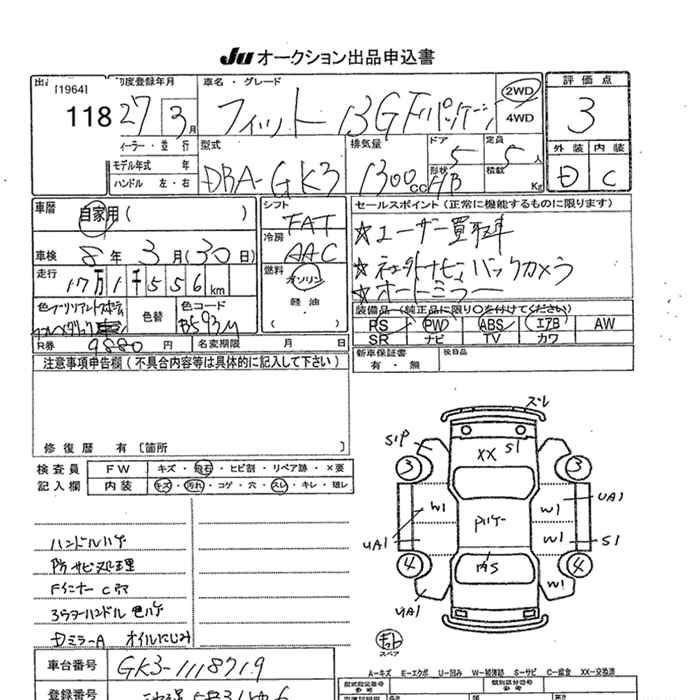 Ju オークション出品申込書
[1964]
118
初度登録年月
27年 3月
車名・グレード
フィット 13G Fパッケージ
2WD
4WD
評価点
3
ディーラー・並行
モデル年式 年
ハンドル 左・右
型式
DBA-GK3
排気量
1300cc
ドア
5
形状
HB
定員
5人
積載
Kg
外装 内装
D C
車歴
自家用(
車検 8年 3月(30日)
走行
17万1千556km
シフト
FAT
冷房
AAC
燃料
ガソリン
軽油
セールスポイント(正常に機能するものに限ります)
☆ユーザー買取車
バックカメラ
☆オートミラー
色替
色コード
B593M
R券 9880円
名変期限 月 日
装備品(純正品に限り○を付けてください)
PS PW ABS エアB AW
SR ナビ TV カワ
新車保証書
有・無
後日品
注意事項申告欄(不具合内容等は具体的に記入して下さい)
修復歴 有[箇所 ]
検査員
記入欄
FW キズ・飛石・ヒビ割・リペア跡・×要
内装 キズ・汚れ・コゲ・穴・スレ・キレ・壊レ
ハンドルハゲ
Fインナー
オイルにじみ
ズレ
S1P
XX
S1
3
3
UA1
W1
W1
UA1
W1
S1
4
4
W1
UA1
スペア
車台番号 GK3-1118719
登録番号
A-キズ E-エクボ U-凹み W-補修跡 S-サビ C-腐食 XX-交換済
型式指定番号
類別区分番号